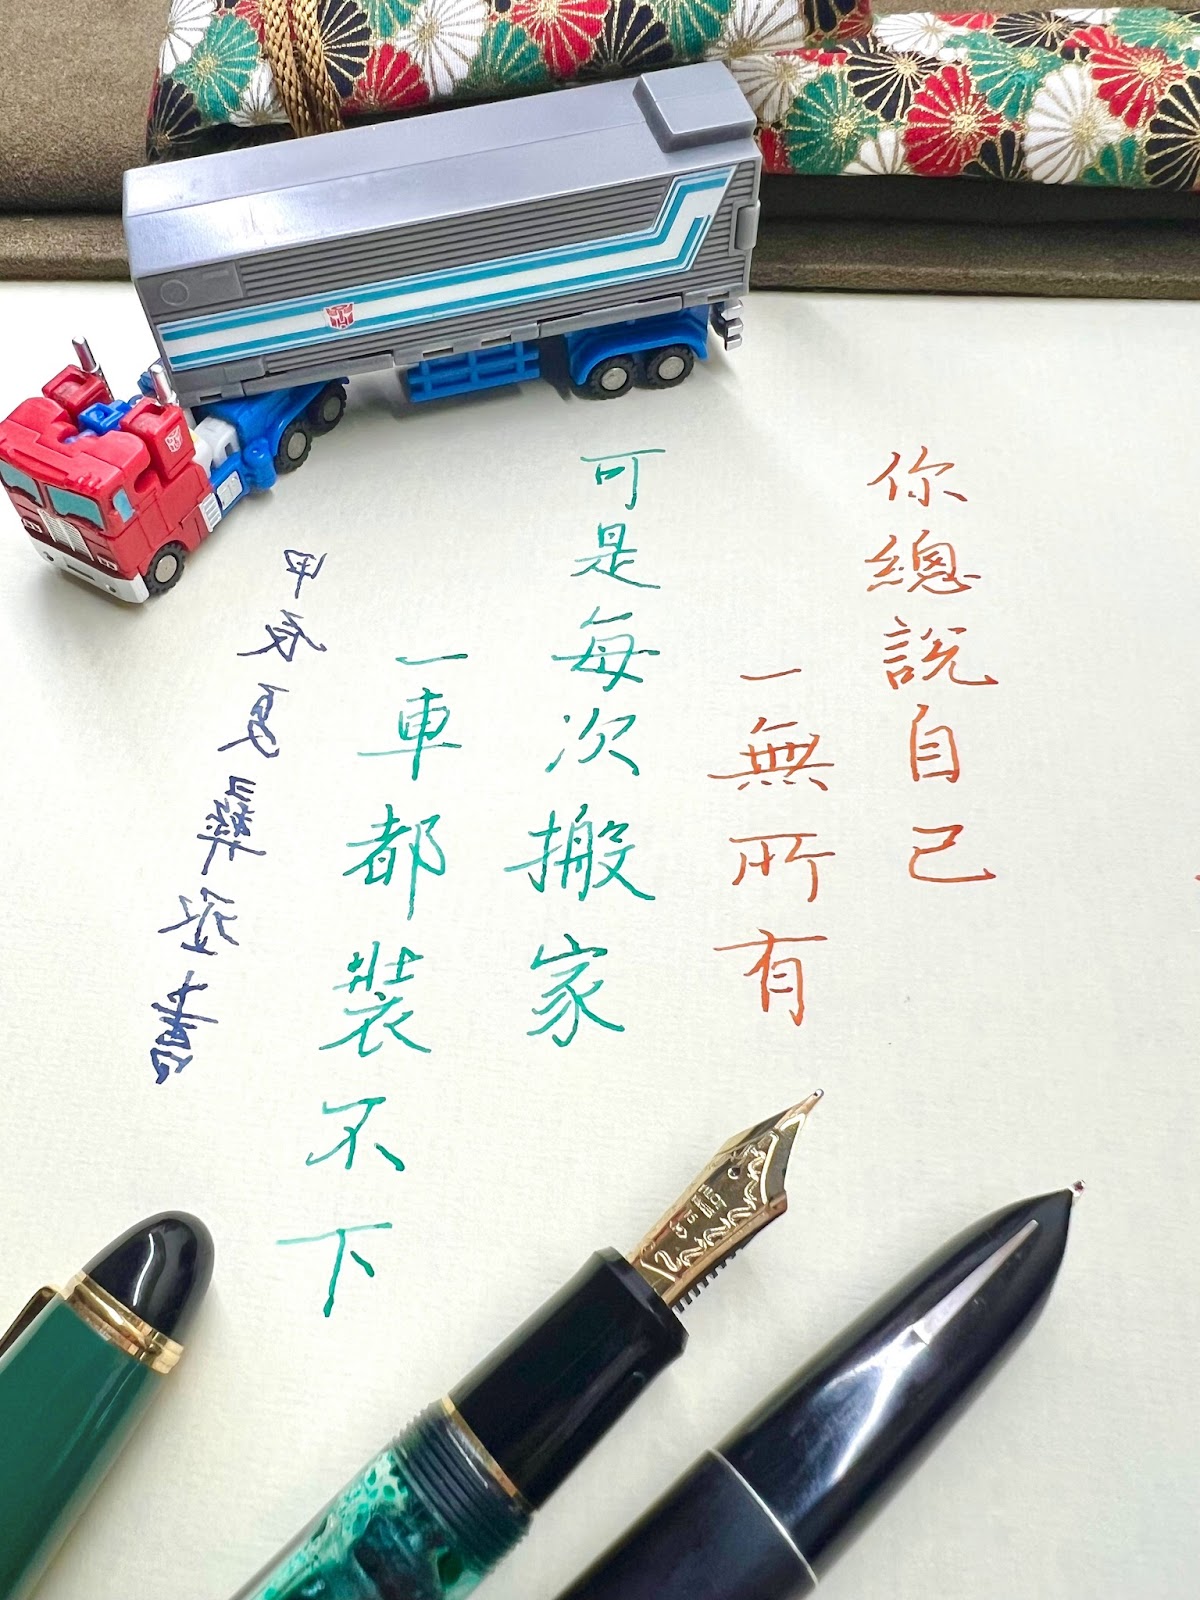 你總說自己
一無所有
可是每次搬家
一車都裝不下
甲辰夏
書